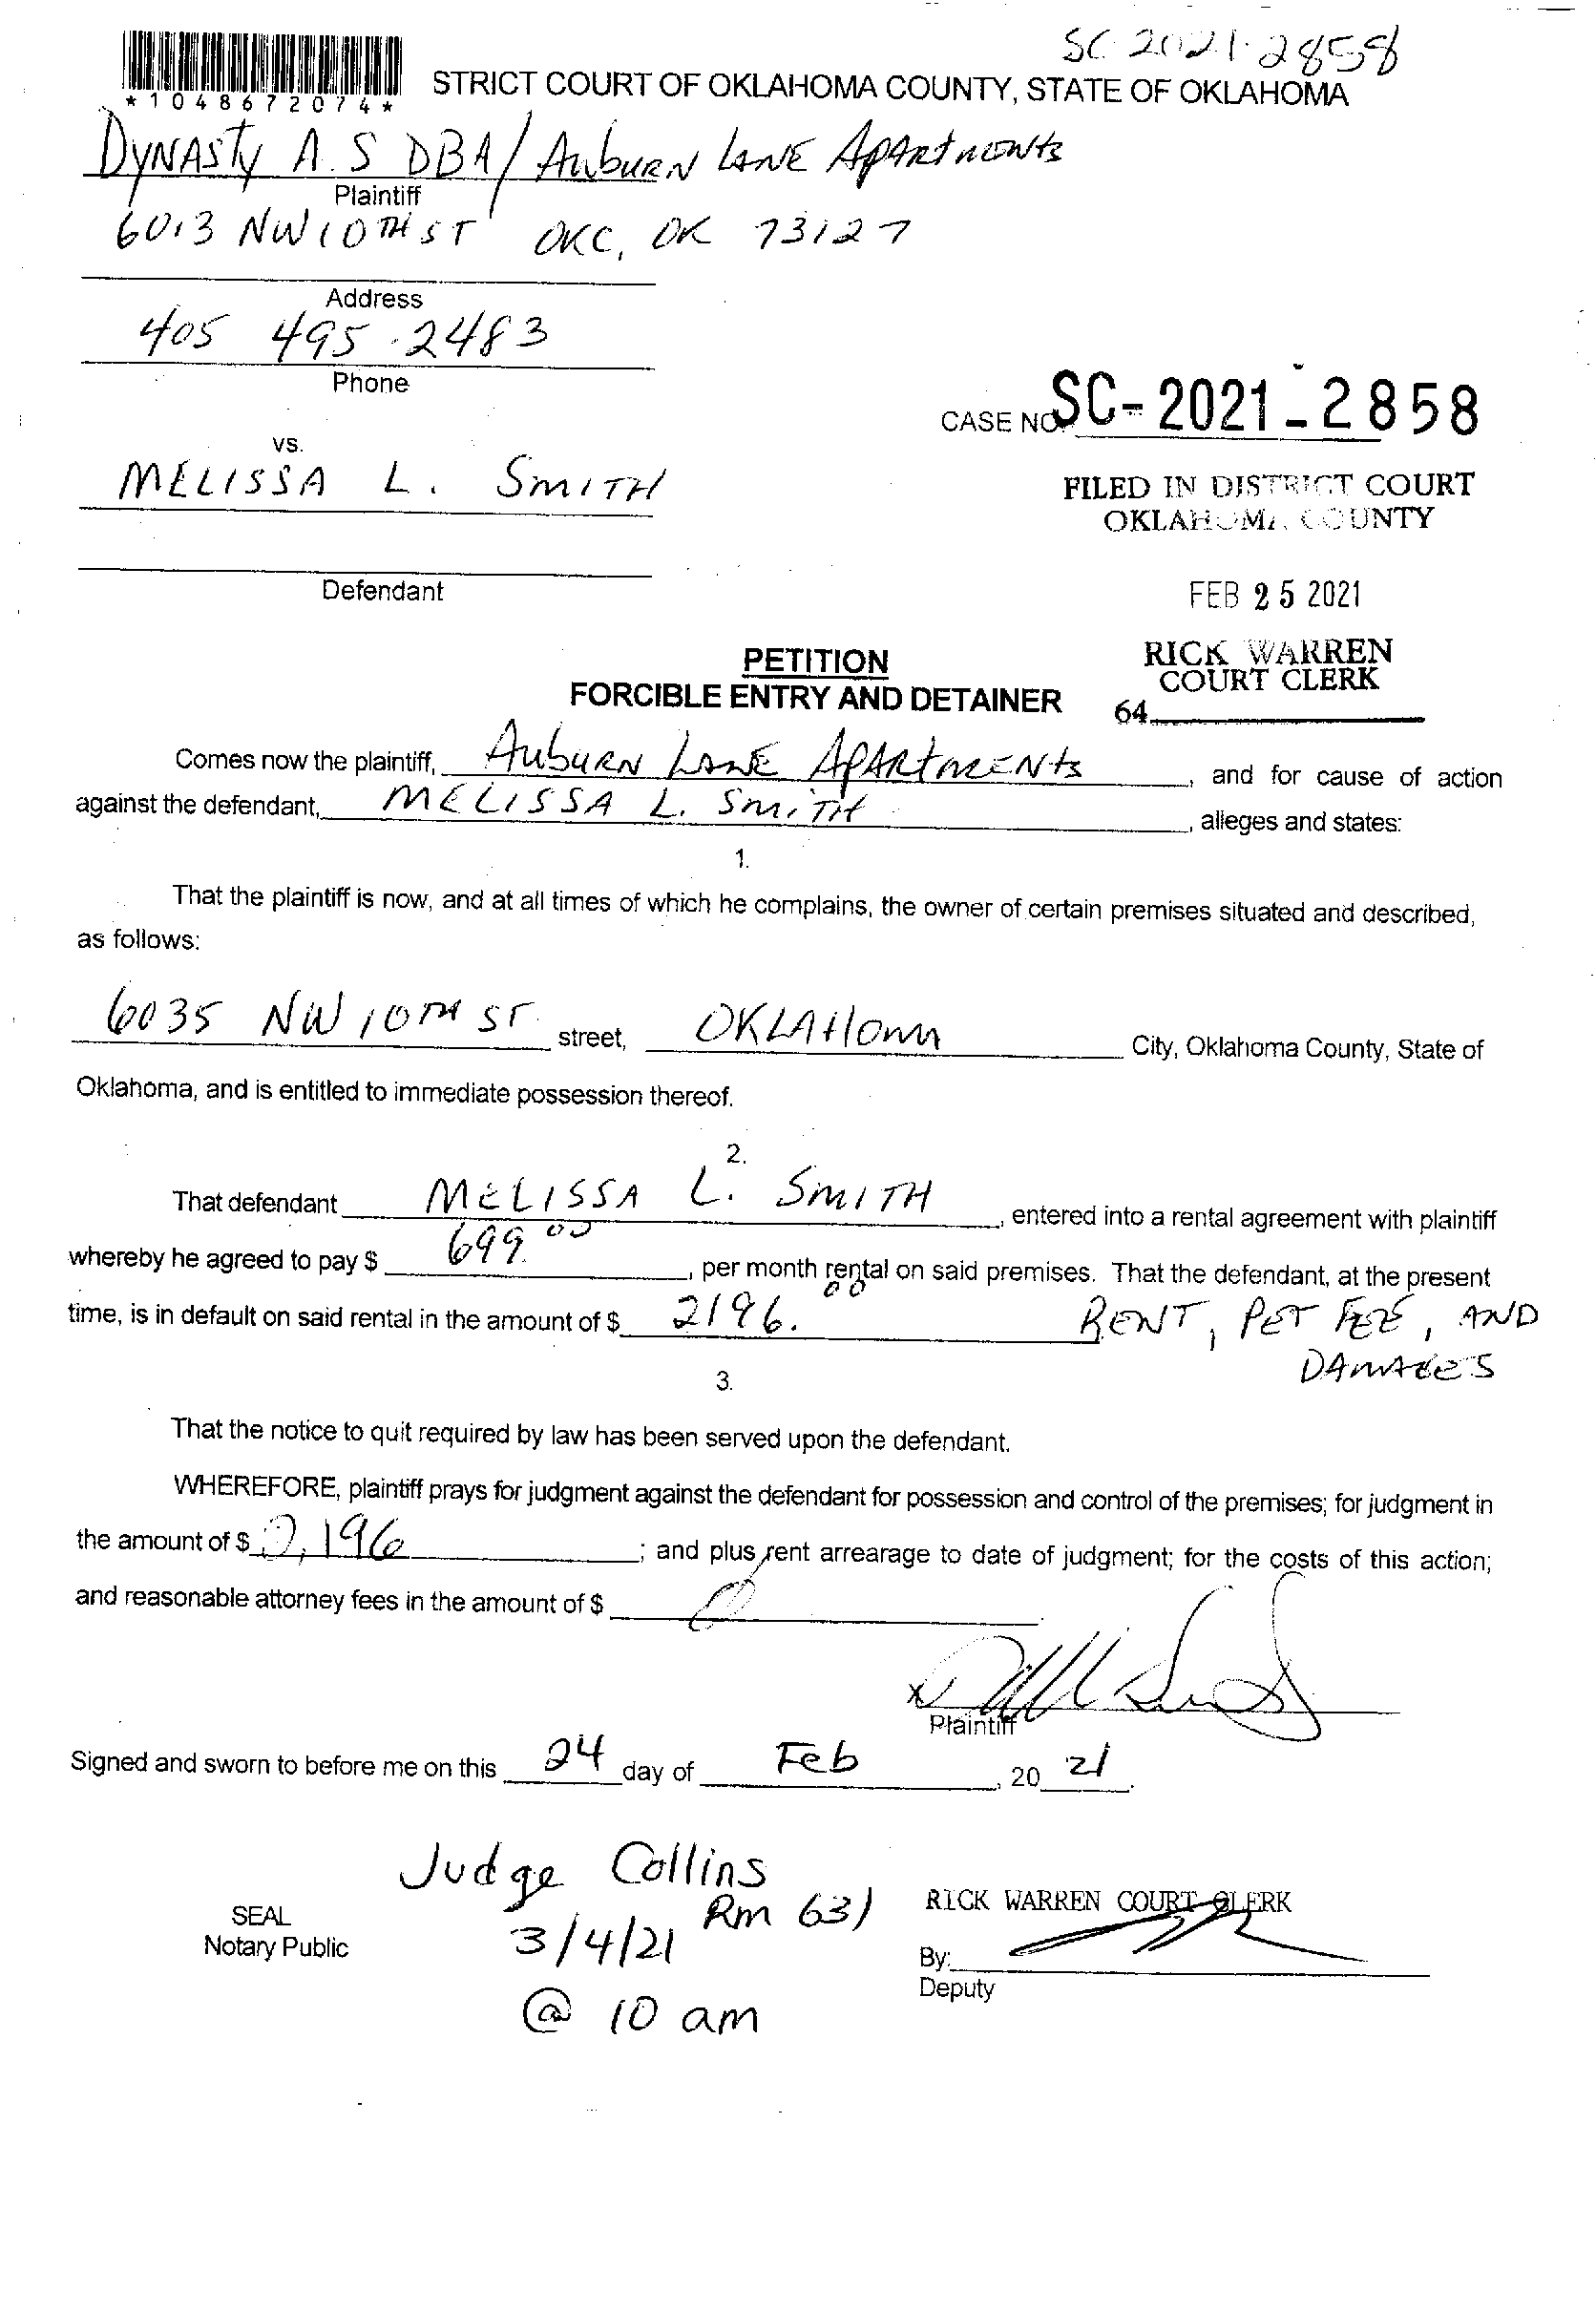 SC 2021-2858
*1048672074*
STRICT COURT OF OKLAHOMA COUNTY, STATE OF OKLAHOMA
DYNASTY A.S DBA/ AUBURN LANE APARTMENTS
Plaintiff
6013 NW 10TH ST OKC, OK 73127
Address
405 495-2483
Phone
CASE NO. SC-2021-2858
vs.
MELISSA L. SMITH
FILED IN DISTRICT COURT
OKLAHOMA COUNTY
Defendant
FEB 25 2021
PETITION
FORCIBLE ENTRY AND DETAINER
RICK WARREN
COURT CLERK
64
Comes now the plaintiff, AUBURN LANE APARTMENTS, and for cause of action
against the defendant, MELISSA L. SMITH, alleges and states:
1.
That the plaintiff is now, and at all times of which he complains, the owner of certain premises situated and described,
as follows:
6035 NW 10TH ST. street, OKLAHOMA City, Oklahoma County, State of
Oklahoma, and is entitled to immediate possession thereof.
2.
That defendant MELISSA L. SMITH, entered into a rental agreement with plaintiff
whereby he agreed to pay $ 699.00, per month rental on said premises. That the defendant, at the present
time, is in default on said rental in the amount of $ 2196.00 RENT, PET FEE, AND
DAMAGES
3.
That the notice to quit required by law has been served upon the defendant.
WHEREFORE, plaintiff prays for judgment against the defendant for possession and control of the premises; for judgment in
the amount of $ 2,196; and plus rent arrearage to date of judgment; for the costs of this action;
and reasonable attorney fees in the amount of $ 0
x
Plaintiff
Signed and sworn to before me on this 24 day of Feb, 20 21.
Judge Collins
Rm 631
SEAL
Notary Public
3/4/21
@ 10 am
RICK WARREN COURT CLERK
By:
Deputy